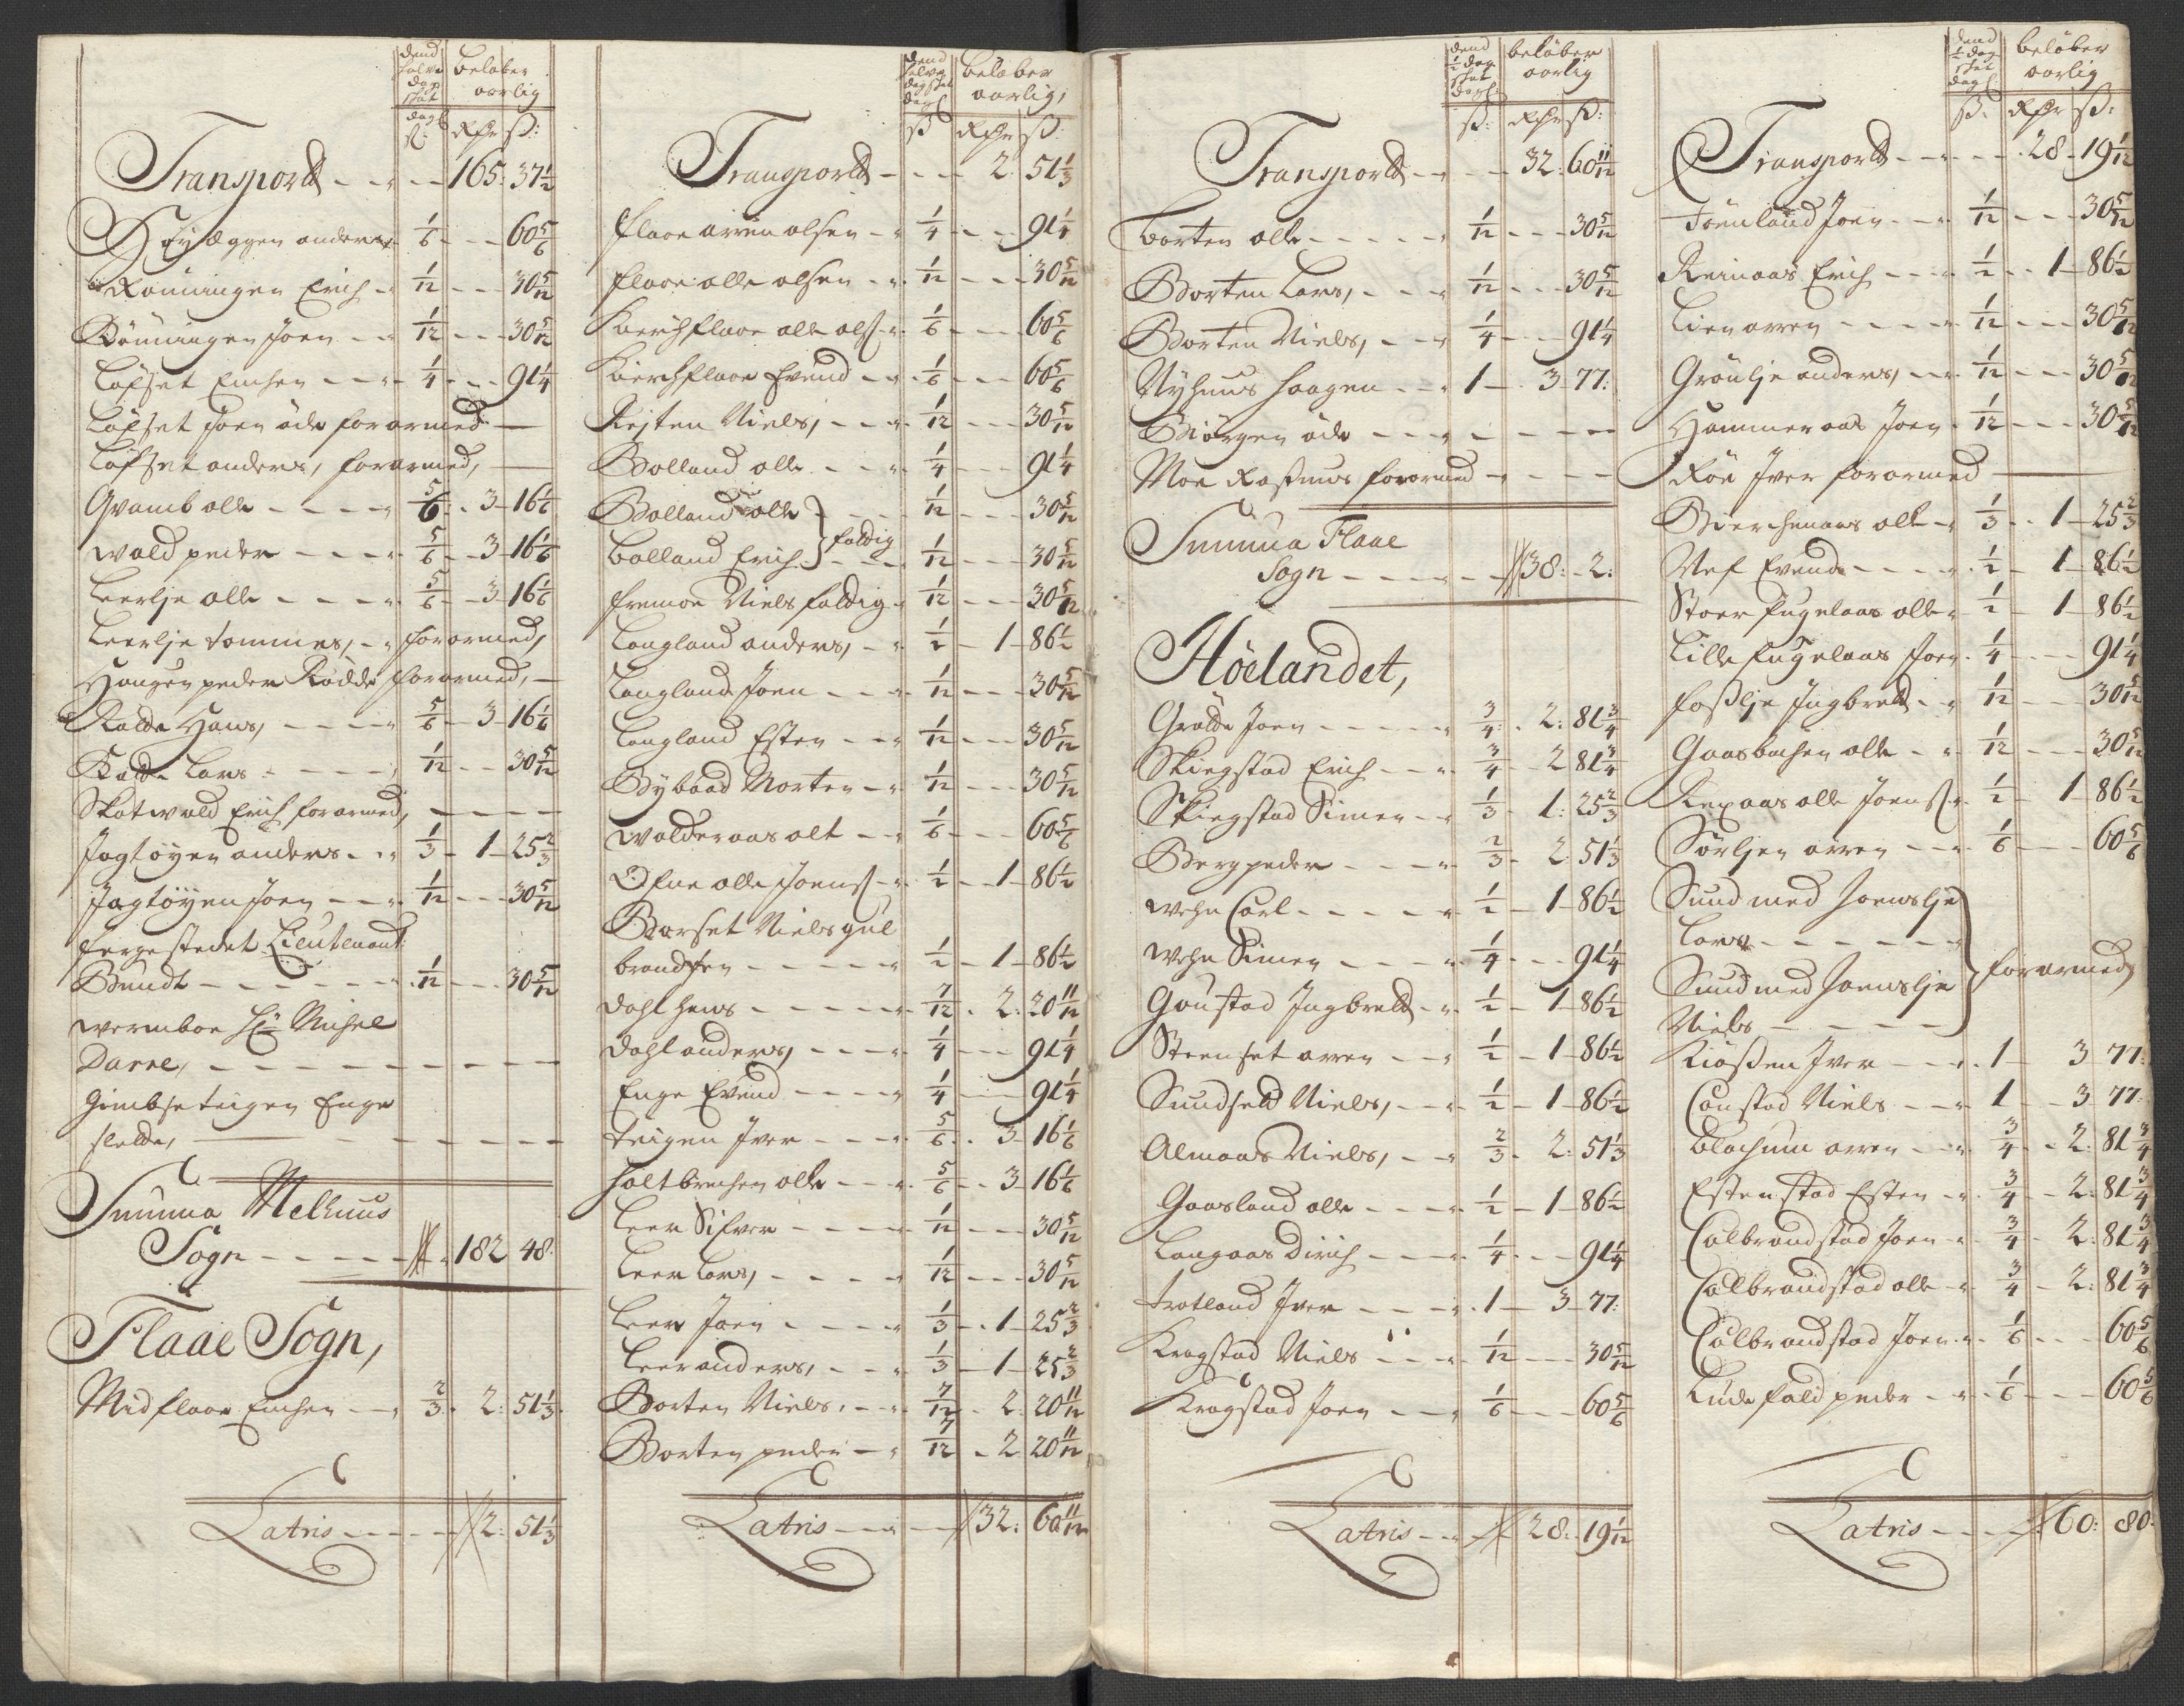 dend halve dag skat dagl. beløber aarlig
ß: Rdr ß:
Transportt - - - 165: 37½
Høyeggen anders 1/6 - - 60 5/6
Rønningen Erich - 1/12 - - - 30 5/12
Rønningen Joen - - 1/12 - - 30 5/12
Løfset Einchen - - - 1/4 - - - 91 1/4
Løfset Joen øde forarmed -
Løfset anders, forarmed, -
Qvamb olle - - - - 5/6 - - 3 - 16 1/6
wold peder - - - - 5/6 - - 3 - 16 1/6
Leerlje olle - - - - 5/6 - - 3 - 16 1/6
Leerlje tommes, - - forarmed,
Haugen peder Rødde forarmed, -
Rødde Hans, - - - - 5/6 - 3 - 16 1/6
Rødde Lars - - - - 1/12 - - 30 5/12
Skotwold Erich forarmed, - - - -
Jagtøyen anders - - - 1/3 - 1 - 25 2/3
Jagtøyen Joen - - - 1/12 - - - 30 5/12
fergestedet Lieutenant
Bundt - - - - - - 1/12 - - - 30 5/12
wermboe Hr Michel
Darre, - - - - - - - -
Gimbseteigen Enge
slette, - - - - - -
Summa Melhuus
Sogn - - - - - 182 48:
Flaae Sogn,
Midflaae Einchen - - 2/3 - 2: 51 1/3
Latris - - - - 2: 51 1/3
dend halve dag skat dagl beløber aarlig,
ß Rdr ß:
Transportt - - - - 2 51 1/3
flaae arren olsen - - 1/4 - - - 91 1/4
flaae olle olsen - - 1/12 - - - 30 5/12
Kierchflaae olle ols - 1/6 - - - 60 5/6
Kierchflaae Evend - - 1/6 - - - 60 5/6
Rejten Niels, - - - 1/12 - - - 30 5/12
Bolland olle - - - 1/4 - - - 91 1/4
Bolland olle - - - 1/12 - - - 30 5/12
Bolland Erich - fattig - - 1/12 - - - 30 5/12
fremoe Niels fattig - 1/12 - - - 30 5/12
Langland anders, - - 1/2 - 1 - 86 1/2
Langland Joen - - - 1/12 - - - 30 5/12
Langland Esten - - - 1/12 - - - 30 5/12
Bybaad Morten - - 1/12 - - - 30 5/12
Wolderaas olt - - 1/6 - - - 60 5/6
Ofne olle Joens - - 1/2 - - 1 - 86 1/2
Borset Niels gul
brandsen - - - - - 1/2 - 1 - 86 1/2
Dahl Hens - - - - - 7/12 - 2: 20 11/12
Dahl anders, - - - - 1/4 - - - 91 1/4
Enge Evend - - - - 1/4 - - - 91 1/4
teigen Iver - - - - 5/6 - - 3 - 16 1/6
holtbrechen olle - - - 5/6 - - 3 - 16 1/6
Leer Sifver - - - - 1/12 - - - 30 5/12
Leer Lars, - - - - 1/12 - - - 30 5/12
Leer Joen - - - - 1/3 - - 1 - 25 2/3
Leer anders, - - - 1/3 - 1 - 25 2/3
Borten Niels, - - - 7/12 - 2: 20 11/12
Borten peder - - 7/12 - 2 20 11/12
Latris - - - - 32: 60 11/12
dend ½ dag skat dagl: beløber aarlig
ß: Rdr ß:
Transportt - - - 32: 60 11/12
Borten olle - - - - - 1/12 - - - 30 5/12
Borten Lars, - - - 1/12 - - - 30 5/12
Borten Niels, - - - 1/4 - - - 91 1/4
Nyhuus Haagen - - - 1 - 3 - 77:
Biørgen øde - - - - - - -
Moe Rasmus forarmed - - - -
Summa Flaae
Sogn - - - - - - 38: - 2:
Höelandet,
Grødde Joen - - - - - 3/4: - 2: 81 3/4
Skiegstad Erich - - - 3/4 - - 2 81 3/4
Skiegstad Simen - - 1/3 - 1: 25 2/3
Berg peder - - - - 2/3 - 2: 51 1/3
wehn Carl - - - - - 1/2 - 1 - 86 1/2
wehn Simen - - - - 1/4 - - - 91 1/4
Goustad Ingbrett - - 1/2 - 1 - 86 1/2
Steenset arren - - - 1/2 - 1 - 86 1/2
Sundset Niels, - - - 1/2 - 1 - 86 1/2
Almaas Niels, - - 2/3 - 2: 51 1/3
Gaasland olle - - - - 1/2 - 1 - 86 1/2
Langaas Dirich - - - - 1/4 - - - 91 1/4
trotland Iver - - - - 1 - 3 - 77:
Kragstad Niels - - - 1/12 - - - 30 5/12
Kragstad Joen - - - 1/6 - - - 60 5/6
Latris - - - 28: - 19 1/12
dend ½ dag skat dagl beløber aarlig
ß: Rdr ß:
Transportt - - - - - 28 - 19 1/12
Joen - - - 1/12 - - - 30 5/12
Reinaas Erich - - - 1/2 - - 1 - 86 1/2
Lien arren - - - - - 1/12 - - - 30 5/12
Grønlje anders, - - - 1/12 - - - 30 5/12
Hammeraas Joen - 1/12 - - - 30 5/12
Røe Iver forarmed -
Bierchenaas olle - - 1/3 - - 1 - 25 2/3
Nef Evend - - - - - 1/2 - 1 - 86 1/2
Stoer fuglaas olle - 1/2 - 1 86 1/2
Lille fuglaas Joen - 1/4 - - - 91 1/4
foslje Ingbrett - - 1/12 - - - 30 5/12
Gaasbachen olle - - 1/12 - - - 30 5/12
Rexaas olle Joens - 1/2 - 1 - 86 1/2
Sørljen arren - - - 1/6 - - - 60 5/6
Sund med Joenslje
Lars, - - - - - - -
forarmed
Sund med Joenslje
Niels - - - -
Kiøsen Iver - - - - 1 - 3 77:
Constad Niels - - - 1 - - 3 77:
Blochum arren - - - 3/4 - - 2: 81 3/4
Estenstad Esten - - 3/4 - - 2: 81 3/4
Calbrandstad Joen - - 3/4 - 2: 81 3/4
Calbrandstad olle - - 3/4 - 2: 81 3/4
Calbrandstad Joen - - 1/6 - - - 60 5/6
Lude fald peder - - - 1/6 - - - 60 5/6
Latris - - - - 60: 80: